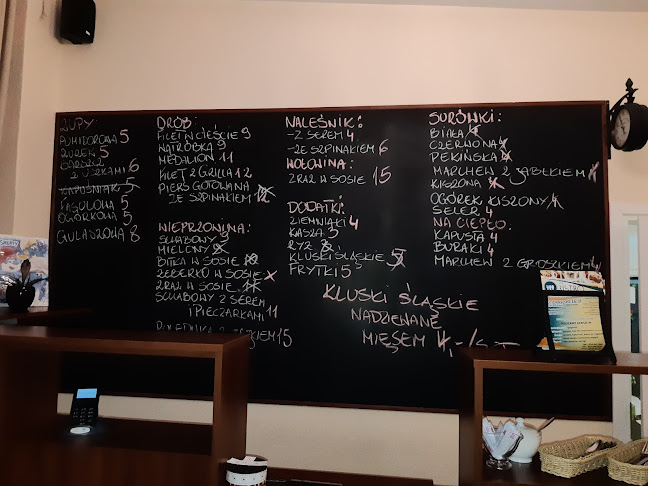 ZUPY:
POMIDOROWA 5
ŻUREK 5
BARSZCZ
Z USZKAMI 6
KAPUŚNIAK 5
FASOLOWA 5
OGÓRKOWA 5
GULASZOWA 8
DRÓB:
FILET W CIEŚCIE 9
WĄTRÓBKA 9
MEDALION 11
FILET Z GRILLA 12
PIERŚ GOTOWANA
ZE SZPINAKIEM 12
WIEPRZOWINA:
SCHABOWY 9
MIELONY
BITKA W SOSIE
ŻEBERKO W SOSIE
ZRAZ W SOSIE
SCHABOWY Z SEREM
I PIECZARKAMI 11
15
NALEŚNIK:
-Z SEREM 4
-ZE SZPINAKIEM 6
WOŁOWINA:
ZRAZ W SOSIE 15
DODATKI:
ZIEMNIAKI 4
KASZA 3
RYŻ
KLUSKI ŚLĄSKIE 5
FRYTKI 5
KLUSKI ŚLĄSKIE
NADZIEWANE
MIĘSEM
SURÓWKI:
BIAŁA 4
CZERWONA 4
PEKIŃSKA 4
MARCHEW Z JABŁKIEM 4
KISZONA
OGÓREK KISZONY 4
SELER 4
NA CIEPŁO:
KAPUSTA 4
BURAKI 4
MARCHEW Z GROSZKIEM 4